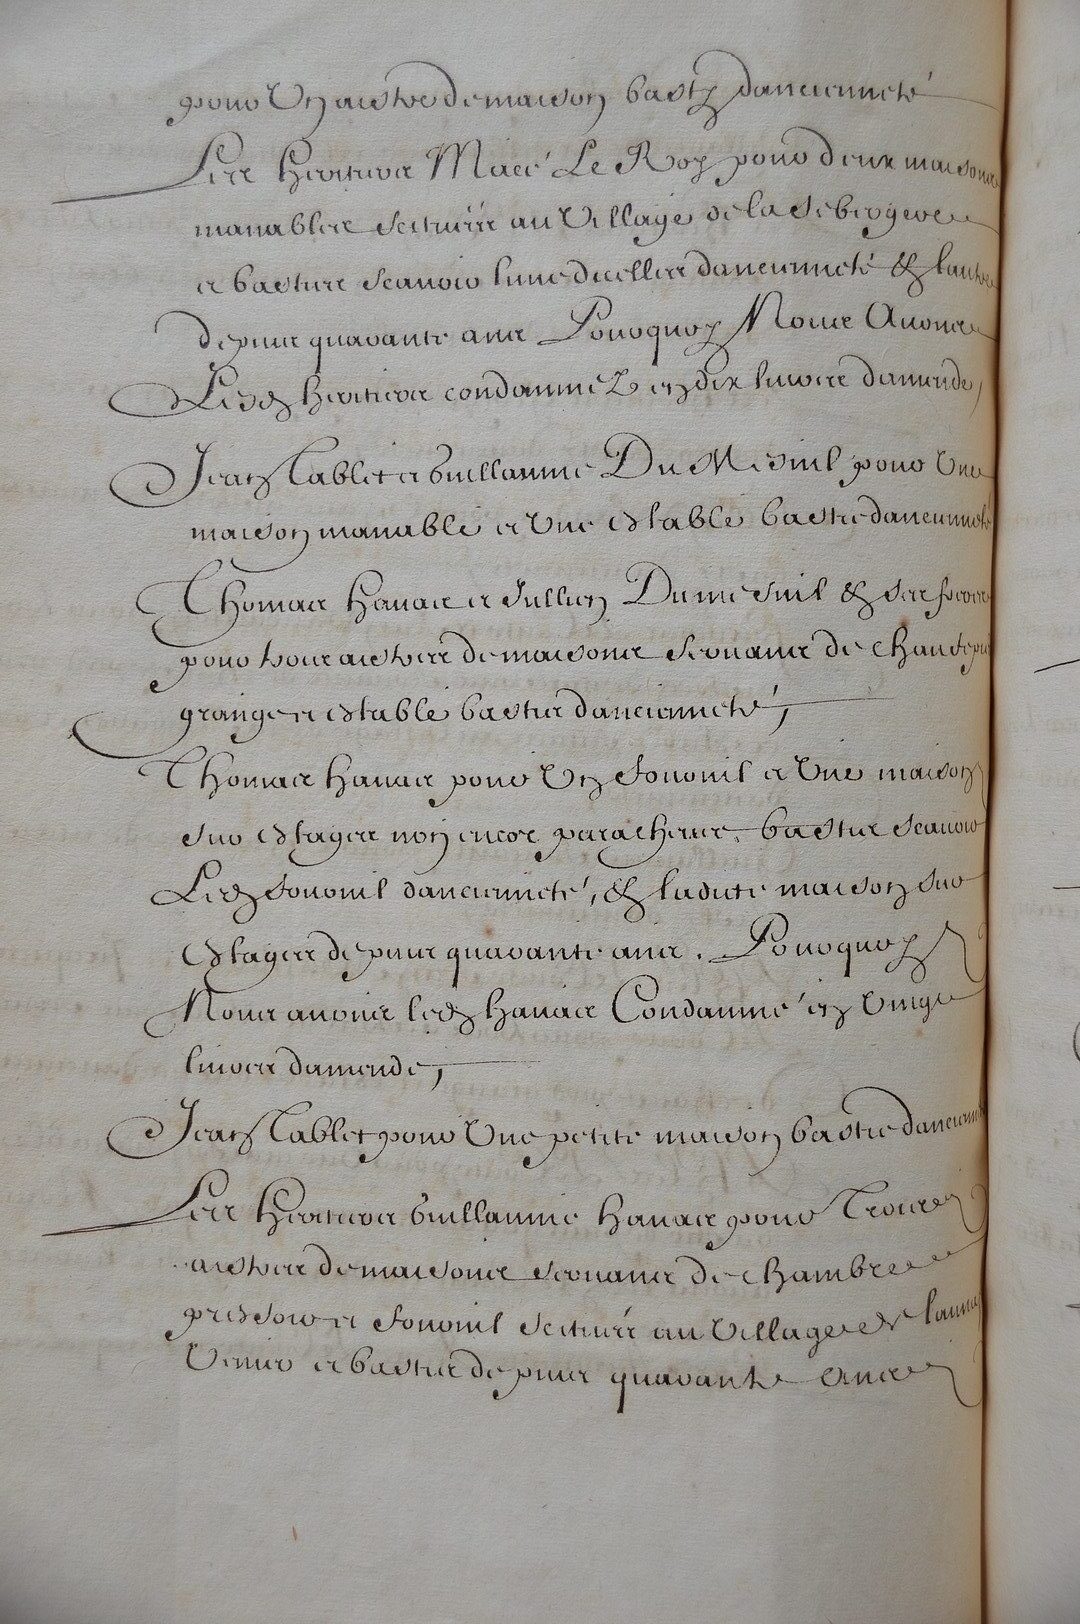 pour Un aistre de maison basty dancienneté
Les Heritiers Macé Le Roy pour deux maisons
manables scituées au Village de la
et basties scauoir lune dicelles danciennete & lautre
depuis quarante ans Pourquoy Nous Auons
Lesd heritiers condamnez en dix liures damende,
Jean Tablet et Guillaume Du Mesnil pour Une
maison manable et Une estable bastie danciennete
Thomas Hauas et Jullien Dumesnil & ses freres
pour trois aistres de maisons seruans de
grange et estable basties danciennete,
Thomas hauas pour Un fournil et Une maison
sur estages non encor paracheuer basties scauoir
Led fournil danciennete, & ladite maison sur
estages depuis quarante ans. Pourquoy
Nous auons led hauas Condamné en Vingt
liures damende,
Jean Tablet pour Une petite maison bastie
Les Heritiers Guillaume hauas pour Trois
aistres de maisons seruans de chambre
pressoir et fournil scitués au Village de
et basties depuis quarante Ans